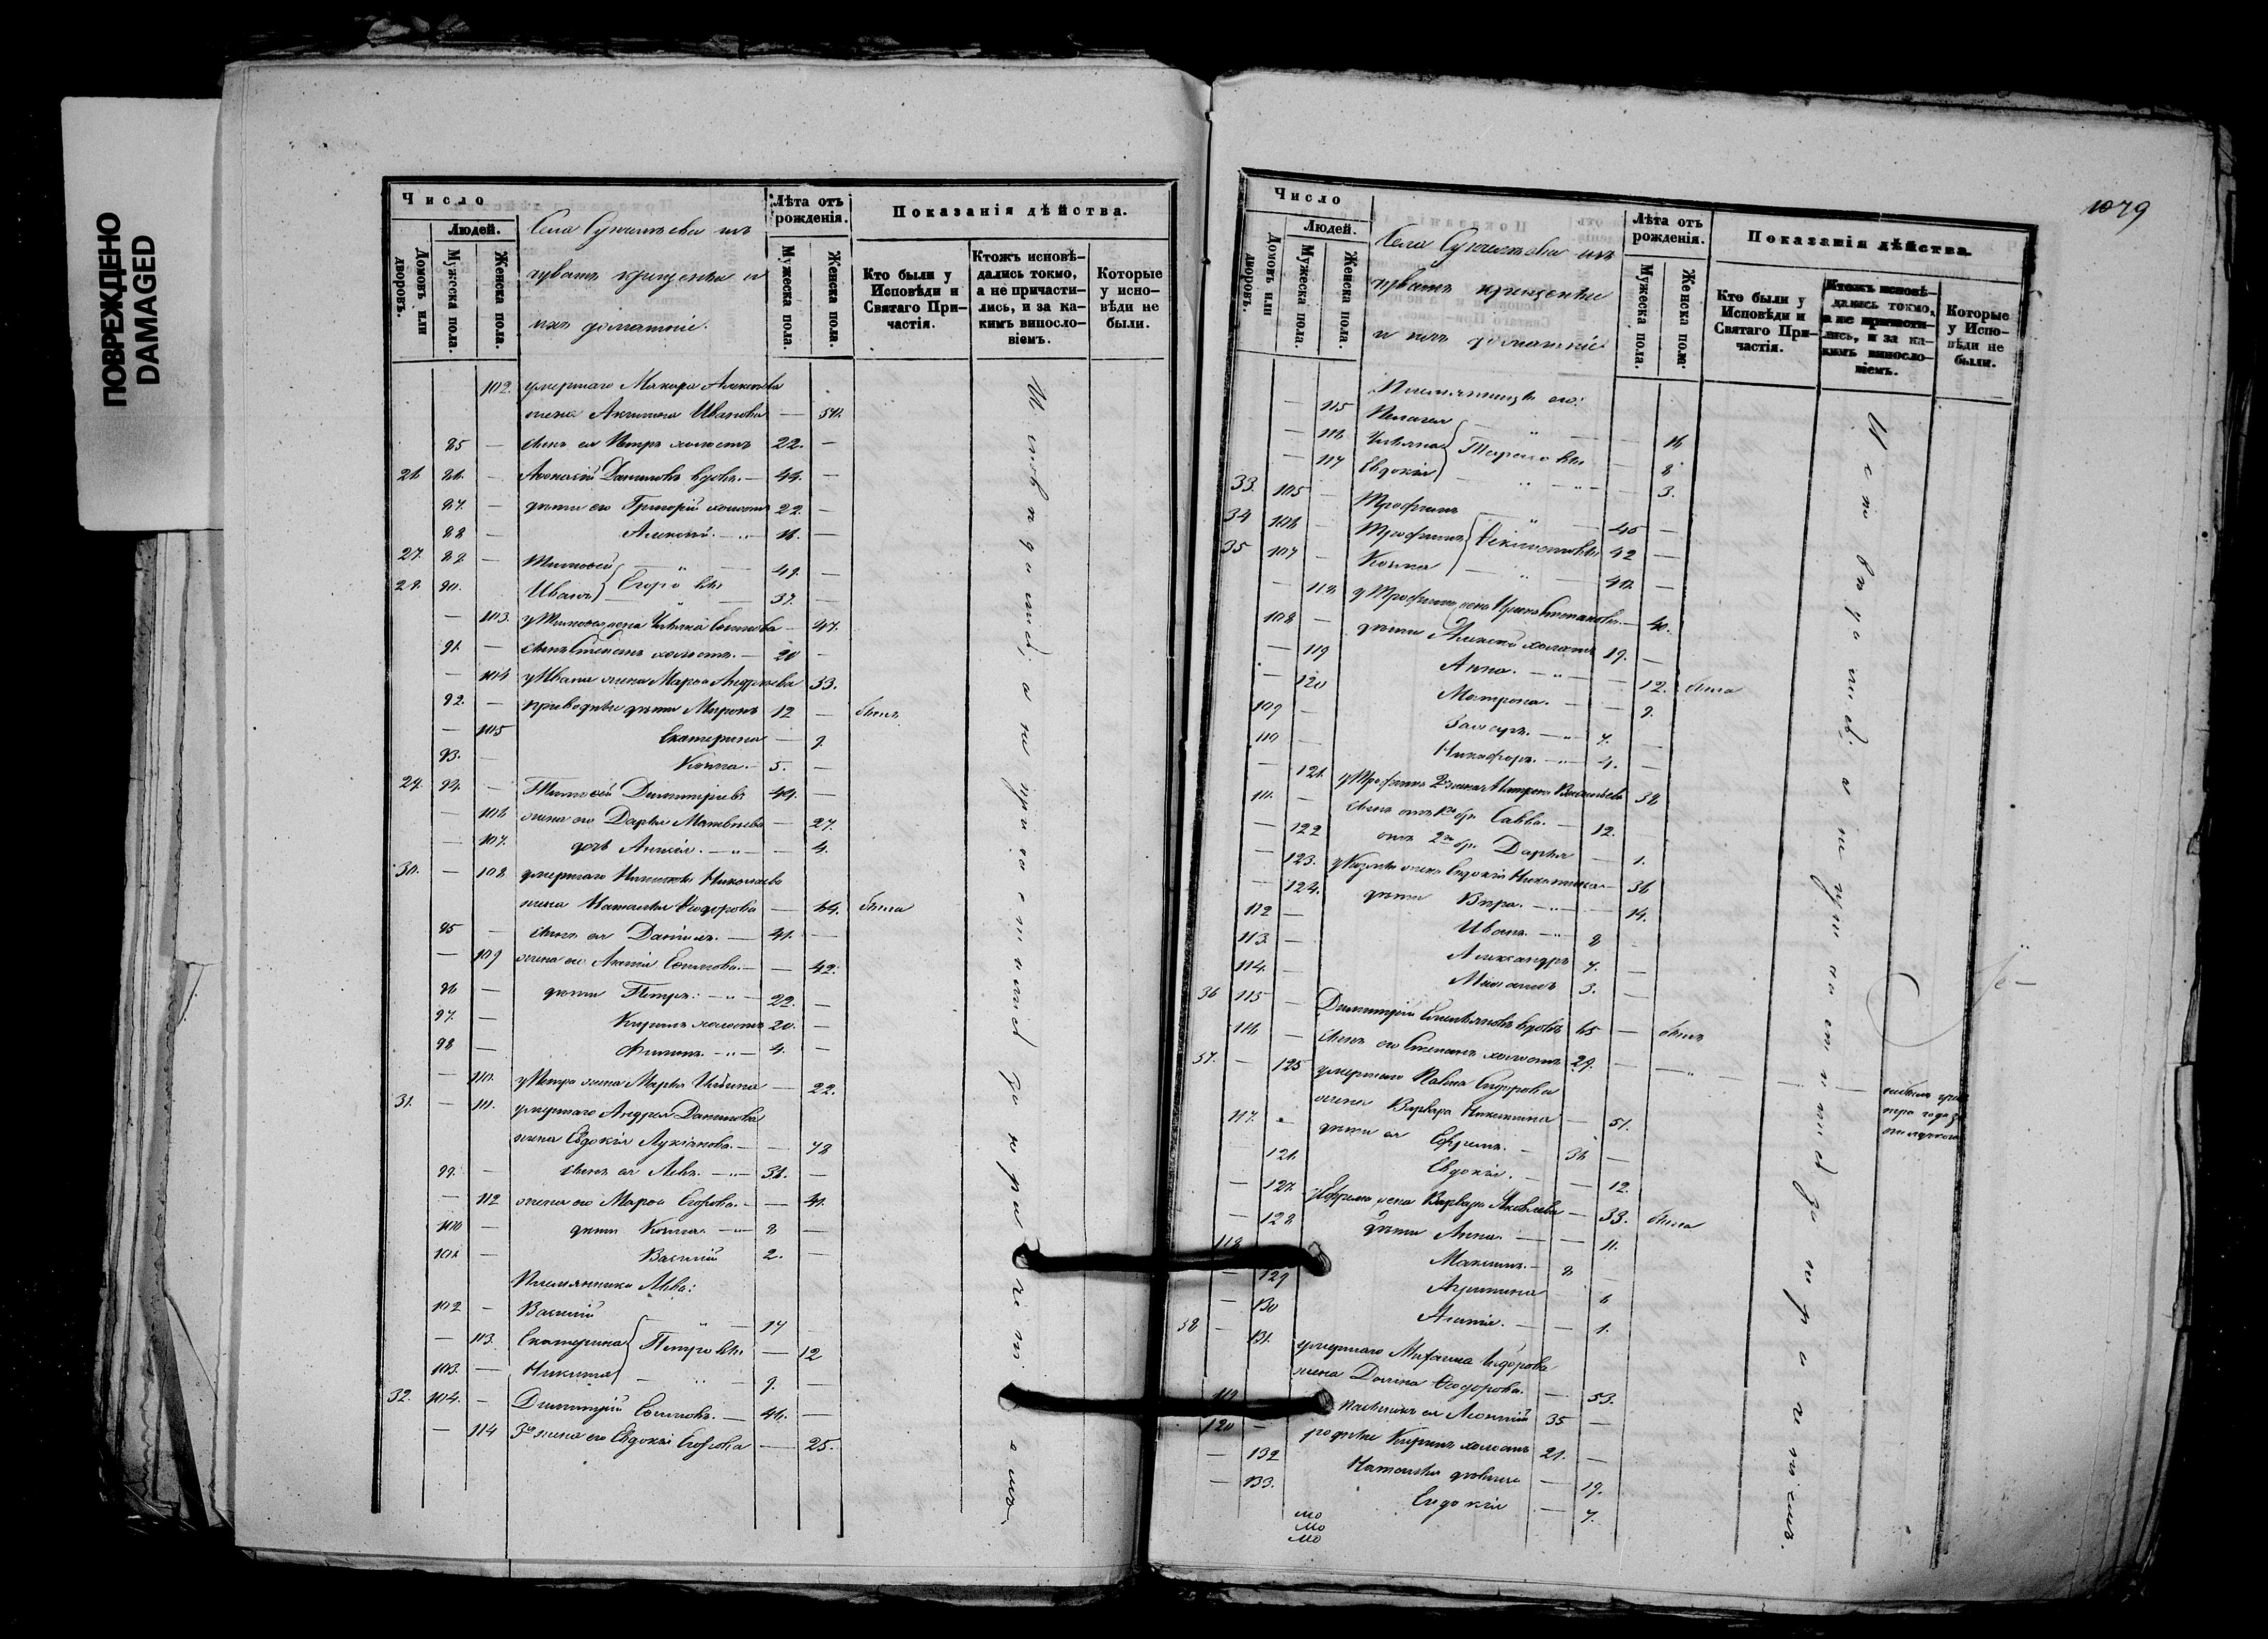 ПОВРЕЖДЕНО
DAMAGED
Число
Людей.
Домовъ или дворовъ.
Мужеска пола.
Женска пола.
Села
чувашъ крещеные и
ихъ домашніе.
Лѣта отъ рожденія.
Мужеска пола.
Женска пола.
Показанія дѣйства.
Кто были у Исповѣди и Святаго Причастія.
Ктожъ исповѣдались токмо, а не причастились, и за какимъ винословіемъ.
Которые у исповѣди не были.
102. умершаго Макара Алексѣева
жена Акулина Иванова — 50.
85 — сынъ ея Петръ холостъ 22. —
26. 86. — Аѳанасій Даниловъ вдовъ. — 44. —
87. — дѣти его Григорій холостъ 22. —
88 — Алексѣй. — " — 16. —
27. 89. — Тимоѳей — " — 49. —
28. 90. Иванъ } Егоровы — 37. —
— 103. у Тимоѳея жена — 47.
91. — сынъ Степанъ холостъ. — 20 —
— 104 у Ивана жена Марѳа Андреева 33.
92. — приводные дѣти Миронъ 12 — былъ
— 105 Екатерина — 9.
93. — Козма. — 5. —
29. 94. — Тимоѳей Димитріевъ 44. —
— 106 жена его Дарья Матвѣева — 27.
— 107. дочь Анисія. — " — — 4.
30. — 108 умершаго Николаева
жена Наталья Ѳедорова — 64. была
95 — сынъ ея Даніилъ. — 41. —
— 109 жена его Агаѳія — — 42.
96 — дѣти Петръ. — " — 22. —
97. — Кирилъ холостъ 20. —
98 — Филипъ. — " — 4. —
— 110. у Петра жена Марья Ильина — 22.
31. — 111. умершаго Андрея Данилова
жена Евдокія Лукіанова. — — 78
99. — сынъ ея Левъ. — " — 36. —
— 112 жена его Марѳа Егорова. — — 41.
100 — дѣти Козма. — " — 8 —
101 — Василій 2. —
Племянники Льва:
102 — Василій — " — 17
— 113. Екатерина } Петровы — 12
103. — Никита — " — 9. —
32. 104. — Димитрій — 46. —
— 114 3я жена его Евдокія Егорова — 25.
Исповѣдались, а не причастились за нераченіемъ.
1079
Число
Людей.
Домовъ или дворовъ.
Мужеска пола.
Женска пола.
Села
чувашъ крещеные
и ихъ домашніе
Лѣта отъ рожденія.
Мужеска пола.
Женска пола.
Показанія дѣйства.
Кто были у Исповѣди и Святаго Причастія.
Ктожъ исповѣдались токмо, а не причастились, и за какимъ винословіемъ.
Которые у Исповѣди не были.
Племянницы его:
— 115 Пелагея — " — — 16
— 116 Ульяна } Тарасовы — 8
— 117 Евдокія — " — " — 3.
33. 105 — Трофимъ — " — 45 —
34 106 — Трофимъ } Ѳеклистовы 42 —
35 107 — Козма — " — 40. —
— 118. у Трофима жена Ирина Степанова. — 40.
108 — дѣти Алексѣй холостъ 19. —
— 119 Анна. — " — — 12. была
— 120 Матрона. — — 9.
109 — Захаръ. — " 7. —
110 — Никифоръ. — " 4. —
— 121. у Трофима 2 жена Матрона Васильева 38
111. — сынъ отъ 1го бр. Савва. — 12.
— 122 отъ 2го бр. Дарья — 1.
— 123. у Козмы жена Евдокія — 36
— 124. дѣти Вѣра. — " — — 14.
112 — Иванъ. — " 8 —
113. — Александръ 7. —
114. — Михаилъ 3. —
36 115 — Димитрій вдовъ 65 — былъ
116 — сынъ его Степанъ холостъ 29. — — "
37. — 125 умершаго Павла Сидорова
жена Варвара Никитина — 51.
117. — дѣти ея Ефремъ. — 36 —
126. Евдокія. — — 12.
— 127. у Ефрема жена Варвара Яковлева — 33. была
— 128 дѣти Анна. — — 11.
118 Максимъ. — 8 —
— 129 Агрипина — 6
— 130 Агаѳія. — — 1.
38 — 131. умершаго Михаила
жена Ѳедорова. — 53.
119 пасынокъ ея Леонтій 35 —
120 — родные Кирилъ холостъ 21. —
— 132 Наталья дѣвица — 19.
— 133. Евдокія — 7.
Исповѣдались, а не причастились за нераченіемъ.
мо
мо
мо